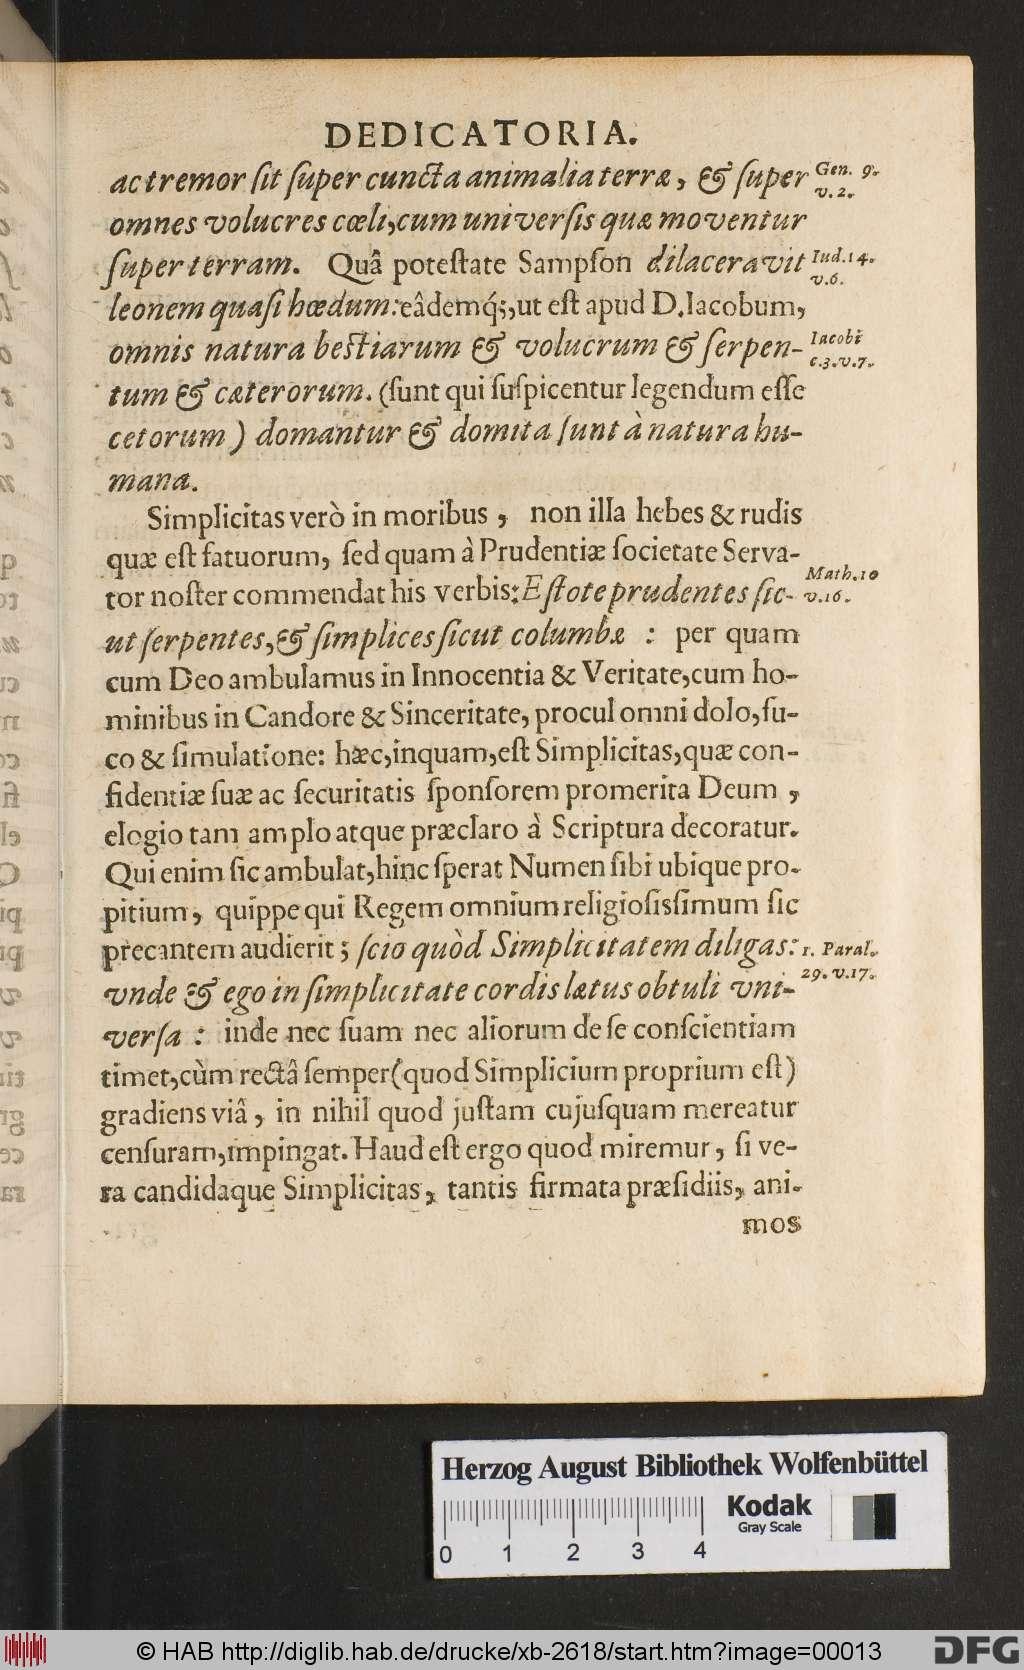 DEDICATORIA.
ac tremor ſit ſuper cuncta animalia terræ, & ſuper Gen. 9. v. 2.
omnes volucres cœli, cum univerſis quæ moventur
ſuper terram. Quâ poteſtate Sampſon dilaceravit Iud. 14. v. 6.
leonem quaſi hœdum: eâdemq́;, ut eſt apud D. Iacobum,
omnis natura beſtiarum & volucrum & ſerpen- Iacobi c. 3. v. 7.
tum & cæterorum. (ſunt qui ſuſpicentur legendum eſſe
cetorum) domantur & domita ſunt à natura hu-
mana.
Simplicitas verò in moribus, non illa hebes & rudis
quæ eſt fatuorum, ſed quam à Prudentiæ ſocietate Serva-
tor noſter commendat his verbis: Eſtote prudentes ſic- Math. 10 v. 16.
ut ſerpentes, & ſimplices ſicut columbæ : per quam
cum Deo ambulamus in Innocentia & Veritate, cum ho-
minibus in Candore & Sinceritate, procul omni dolo, fu-
co & ſimulatione: hæc, inquam, eſt Simplicitas, quæ con-
fidentiæ ſuæ ac ſecuritatis ſponſorem promerita Deum,
elogio tam amplo atque præclaro à Scriptura decoratur.
Qui enim ſic ambulat, hinc ſperat Numen ſibi ubique pro-
pitium, quippe qui Regem omnium religioſiſſimum ſic
precantem audierit; ſcio quòd Simplicitatem diligas: 1. Paral. 29. v. 17.
vnde & ego in ſimplicitate cordis lætus obtuli vni-
verſa : inde nec ſuam nec aliorum de ſe conſcientiam
timet, cùm rectâ ſemper (quod Simplicium proprium eſt)
gradiens viâ, in nihil quod juſtam cujuſquam mereatur
cenſuram, impingat. Haud eſt ergo quod miremur, ſi ve-
ra candidaque Simplicitas, tantis firmata præſidiis, ani-
mos
Herzog August Bibliothek Wolfenbüttel
Kodak
Gray Scale
0 1 2 3 4
© HAB http://diglib.hab.de/drucke/xb-2618/start.htm?image=00013
DFG